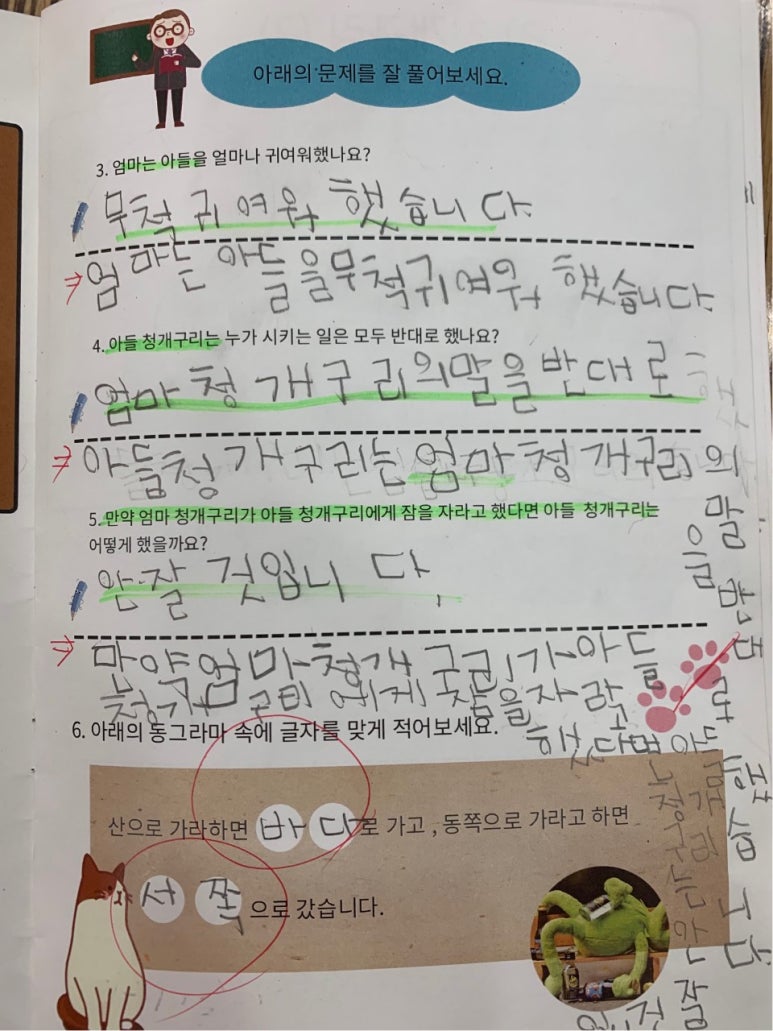 아래의 문제를 잘 풀어보세요.
3. 엄마는 아들을 얼마나 귀여워했나요?
무척 귀여워 했습니다.
⇒ 엄마는 아들을 무척 귀여워 했습니다.
4. 아들 청개구리는 누가 시키는 일은 모두 반대로 했나요?
엄마 청개구리의 말을 반대로
⇒ 아들 청개구리는 엄마 청개구리의
말을 반대로 했습니다
5. 만약 엄마 청개구리가 아들 청개구리에게 잠을 자라고 했다면 아들 청개구리는
어떻게 했을까요?
안 잘 것입니다.
⇒ 만약 엄마 청개구리가 아들
청개구리에게 잠을 자라고
했다면 아들
청개구리는 안 잘
6. 아래의 동그라마 속에 글자를 맞게 적어보세요.
산으로 가라하면 바다로 가고 , 동쪽으로 가라고 하면
서쪽으로 갔습니다.